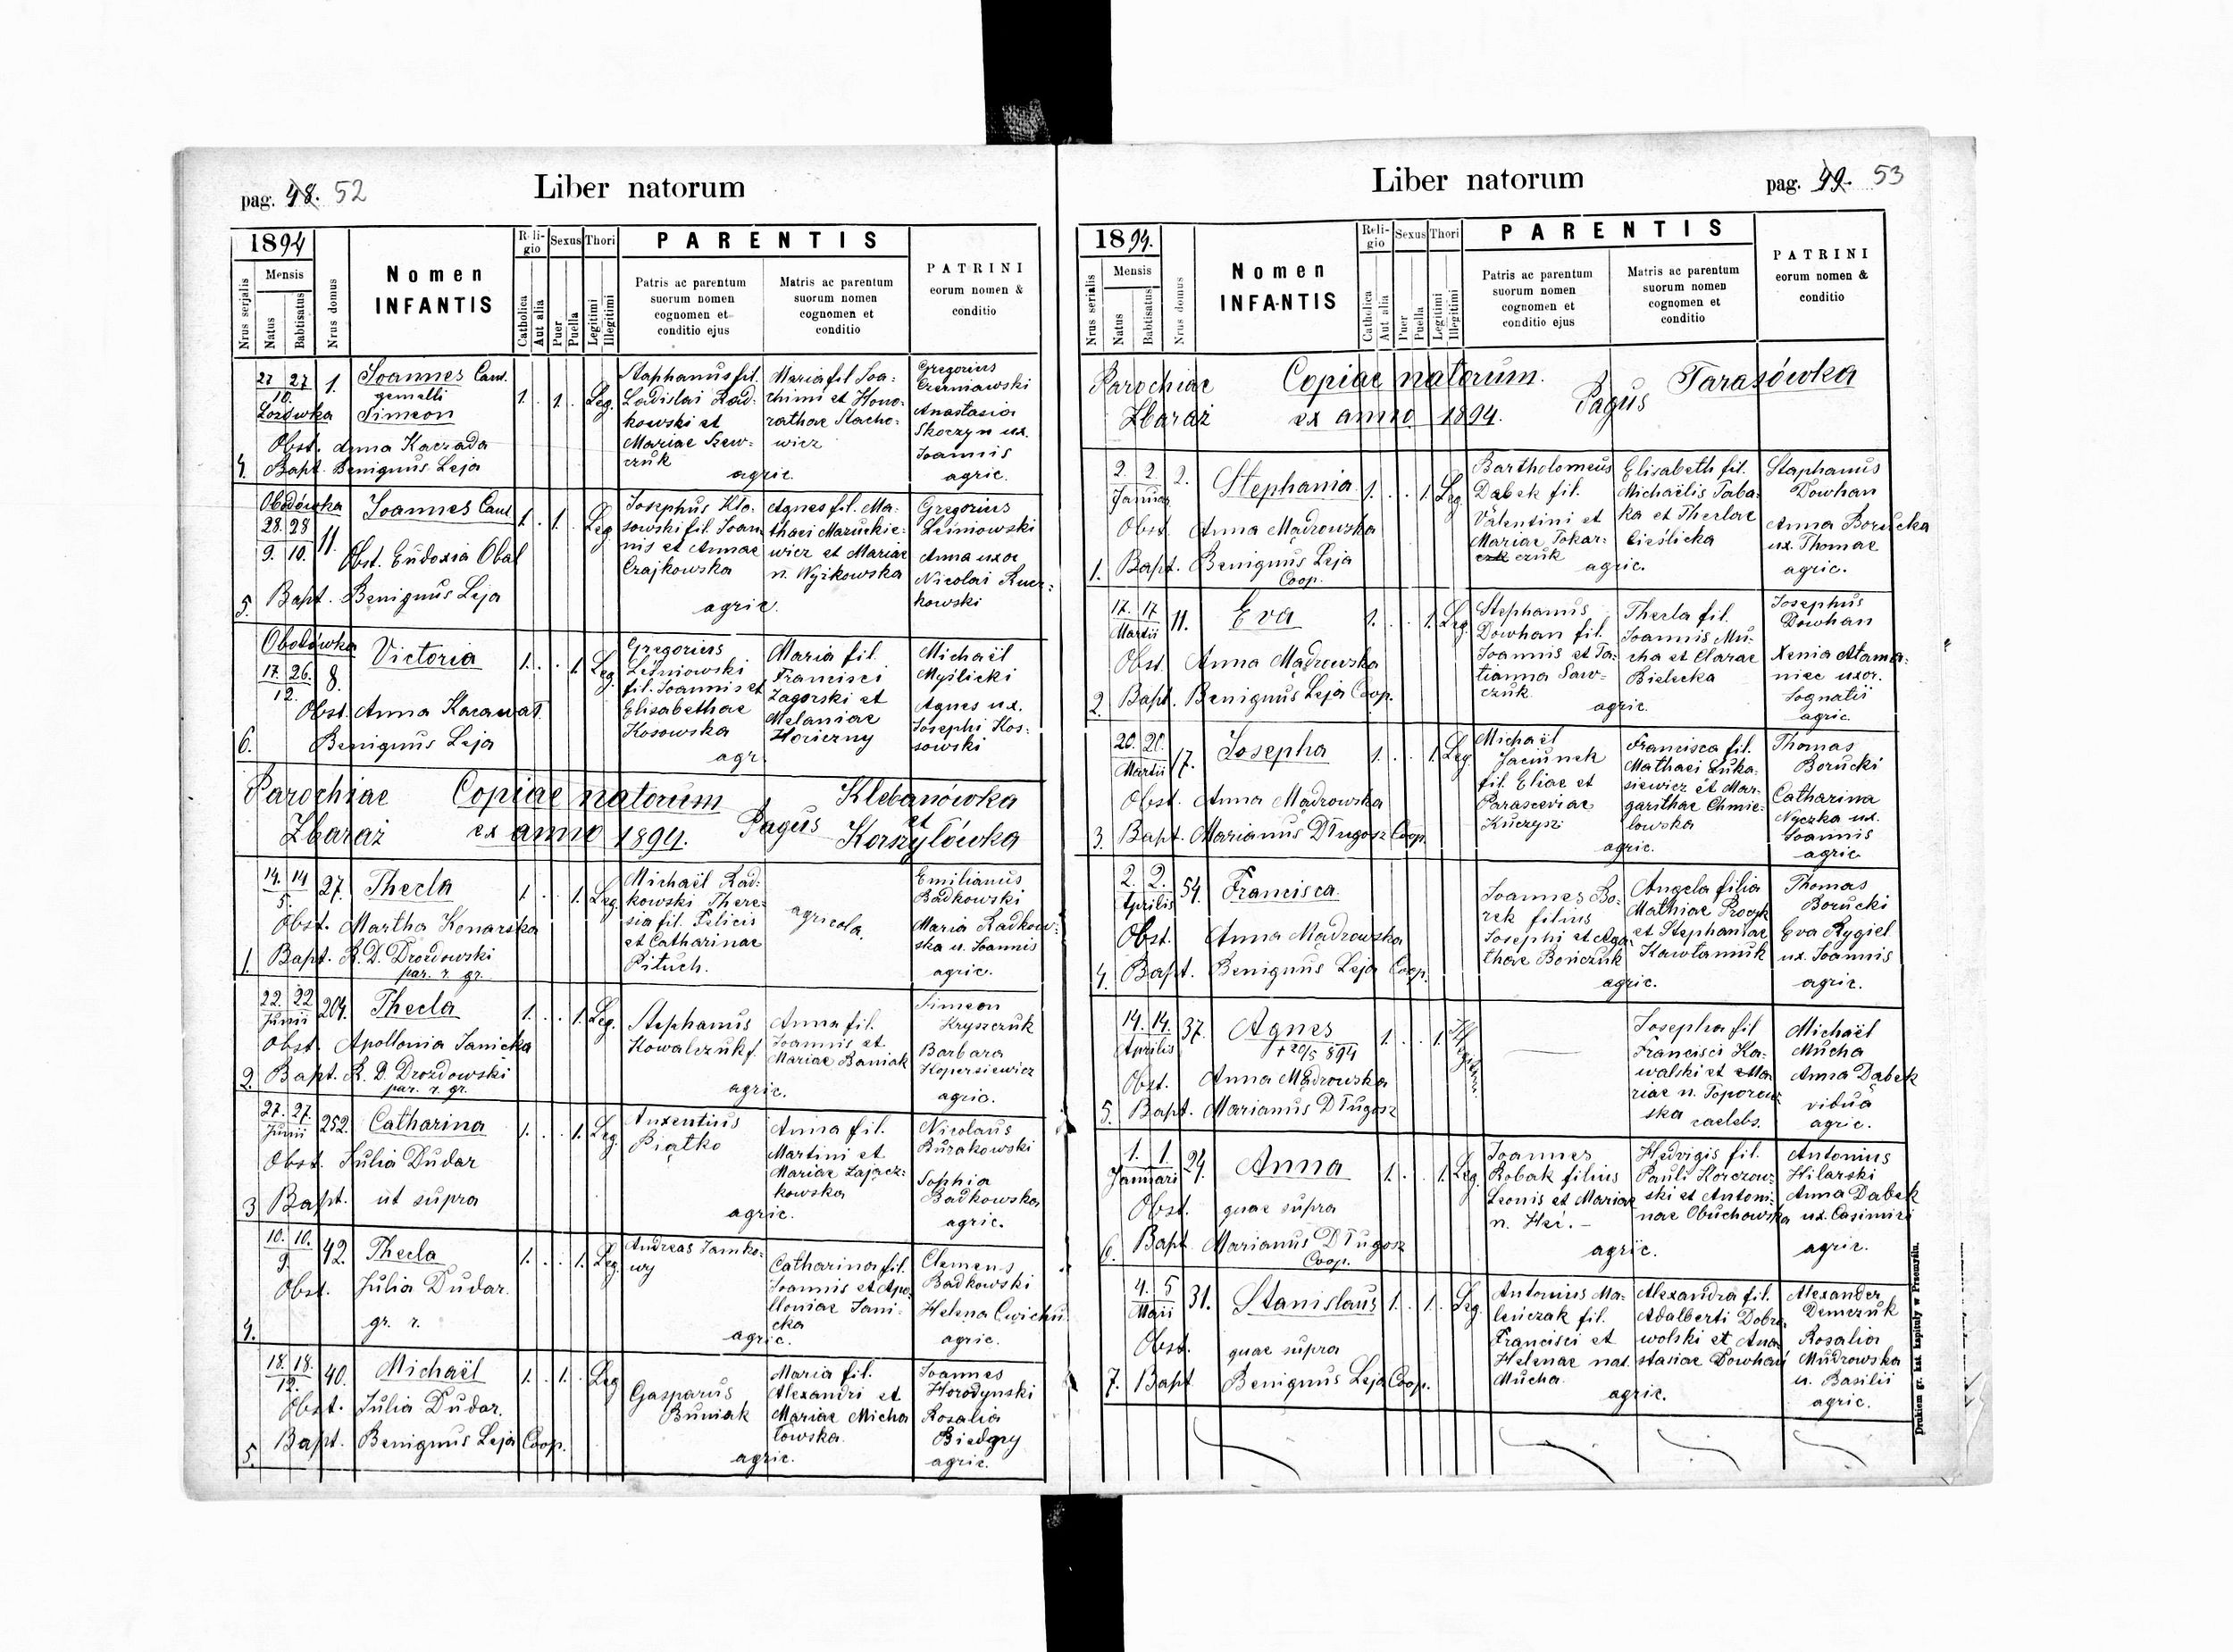 pag. 48. 52
Liber natorum
1894
Nrus serjalis
Mensis
Natus
Babtisatus
Nrus domus
Nomen
INFANTIS
Religio
Catholica
Aut alia
Sexus
Puer
Puella
Thori
Legitimi
Illegitimi
PARENTIS
Patris ac parentum
suorum nomen
cognomen et
conditio ejus
Matris ac parentum
suorum nomen
cognomen et
conditio
PATRINI
eorum nomen &
conditio
27 27 1.
10.
Łozówka
Joannes Cant.
gemelli
Simeon
1. . 1. Leg.
Staphanus fil.
Ladislai Rad-
kowski et
Mariae Szew-
czuk
Maria fil Joa-
chimi et Hono-
rathae Stache-
wicz
agric.
Gregorius
Czerniawski
Anastasia
Skoczyn ux.
Joannis
agric.
Obst. Anna Kaczada
4. Bapt. Benignus Leja
Obodówka
28. 28
9. 10. 11.
Joannes Cant
1. 1. Leg
Josephus Kło-
sowski fil. Joan-
nis et Annae
Czajkowska
Agnes fil. Ma-
thaei Maruckie-
wicz et Mariae
n. Wyżkowska
agric.
Gregorius
Leśniowski
Anna uxor
Nicolai Kucz-
kowski
Obst. Eudoxia Obal
5. Bapt. Benignus Leja
Obodówka
17. 26. 8.
12.
Victoria
1. . . 1. Leg.
Gregorius
Leśniowski
fil. Joannis et
Elisabethae
Kosowska
Maria fil.
Francisci
Zagorski et
Melaniae
Horiczny
agr.
Michaël
Myślicki
Agnes ux.
Josephi Kos-
sowski
Obst. Anna Karawat
6. Benignus Leja
Parochiae Copiae natorum Klebanówka
Zbaraż ex anno 1894. Pagus et Korszyłówka
14. 14 27.
5.
Thecla
1 . . 1. Leg.
Michaël Rad-
kowski There-
sia fil. Felicis
et Catharinae
Pituch.
agricola.
Emilianus
Badkowski
Maria Radkow-
ska u. Joannis
agric.
Obst. Martha Konarska
1. Bapt. R. D. Drozdowski
par. r. gr.
22. 22 204.
Junii
Thecla
1. . . 1. Leg.
Stephanus
Kowalczuk f.
Anna fil.
Joannis et
Mariae Baniak
agric.
Simeon
Kryszczuk
Barbara
Kopersiewicz
agric.
Obst. Apollonia Janicka
2. Bapt. R. D. Drozdowski
par. r. gr.
27. 27. 252.
Junii
Catharina
1. . . 1. Leg.
Auxentius
Piątko
Anna fil.
Martini et
Mariae Zającz-
kowska
agric.
Nicolaus
Burakowski
Sophia
Badkowska
agric.
Obst. Julia Dudar
3 Bapt. ut supra
10. 10. 42.
9.
Thecla
1. . . 1. Leg.
Andreas Jamko-
wy
Catharina fil.
Joannis et Apo-
lloniae Jani-
cka
agric.
Clemens
Badkowski
Helena Cwichu
agric.
Obst. Julia Dudar.
4. gr. r.
18. 18. 40.
12.
Michaël
1. . 1. . Leg
Gasparus
Buniak
Maria fil.
Alexandri et
Mariae Micha
łowska.
agric.
Joannes
Horodynski
Rosalia
Biedgry
agric.
Obst. Julia Dudar.
5. Bapt. Benignus Leja Coop.
Liber natorum
pag. 49. 53
1894.
Nrus serialis
Mensis
Natus
Babtisatus
Nrus domus
Nomen
INFANTIS
Religio
Catholica
Aut alia
Sexus
Puer
Puella
Thori
Legitimi
Illegitimi
PARENTIS
Patris ac parentum
suorum nomen
cognomen et
conditio ejus
Matris ac parentum
suorum nomen
cognomen et
conditio
PATRINI
eorum nomen &
conditio
Parochiae Copiae natorum. Pagus Tarasówka
Zbaraż ex anno 1894.
2. 2. 2.
Januar
Stephania
1. . . 1. Leg
Bartholomeus
Dąbek fil.
Valentini et
Mariae Tokar-
czuk
Elisabeth fil.
Michaëlis Taba-
ka et Theclae
Cieślicka
agric.
Staphanus
Dowhan
Anna Borucka
ux. Thomae
agric.
Obst. Anna Mądrowska
1. Bapt. Benignus Leja
Coop.
17. 17 11.
Martii
Eva
1. . . 1. Leg.
Stephanus
Dowhan fil.
Joannis et Ta-
tianna Saw-
czuk
Thecla fil.
Joannis Mu-
cha et Clarae
Bielecka
agric.
Josephus
Dowhan
Xenia Atama-
niec uxor.
Iognatii
agric.
Obst. Anna Mądrowska
2. Bapt. Benignus Leja Coop.
20. 20. 17.
Martii
Josepha
1. . . 1. Leg.
Michaël
Jaciunek
fil. Eliae et
Parasceviae
Kuczysz
Francisca fil.
Mathaei Łuka-
siewicz et Mar-
garithae Chmie-
lowska
agric.
Thomas
Borucki
Catharina
Nyczka ux.
Joannis
agric.
Obst. Anna Mądrowska
3. Bapt. Marianus Długosz Coop.
2. 2. 54.
Aprilis
Francisca.
Joannes Bo-
rek filius
Josephi et Aga-
thae Bończuk
Angela filia
Mathiae Procyk
et Stephaniae
Kawłamuk
agric.
Thomas
Borucki
Eva Rygiel
ux. Joannis
agric.
Obst. Anna Mądrowska
4. Bapt. Benignus Leja Coop.
14. 14. 37.
Aprilis
Agnes
+ 20/5 894
1. . . 1.
Josepha fil
Francisci Ka-
walski et Ma-
riae n. Toporow-
ska
caelebs.
Michaël
Mucha
Anna Dąbek
vidua
agric.
Obst. Anna Mądrowska
5. Bapt. Marianus Długosz
1. 1. 24.
Januari
Anna
1. . . 1. Leg.
Joannes
Robak filius
Leonis et Mariae
n. Hei. -
Hedvigis fil.
Pauli Korczow-
ski et Antoni-
nae Obuchowska
agric.
Antonius
Hilarski
Anna Dabek
ux. Casimiri
agric.
Obst. quae supra
6. Bapt. Marianus Długosz
Coop.
4. 5 31.
Maii
Stanislaus
1. . 1. . Leg.
Antonius Ma-
leńczak fil.
Francisci et
Helenae nat.
Mucha.
Alexandra fil.
Adalberti Dobro-
wolski et Ana-
stasiae Dowhań
agric.
Alexander
Demczuk
Rosalia
Mudrowska
u. Basilii
agric.
Obst. quae supra
7. Bapt Benignus Leja Coop.
Drukiem gr. kat. kapituły w Przemyślu.